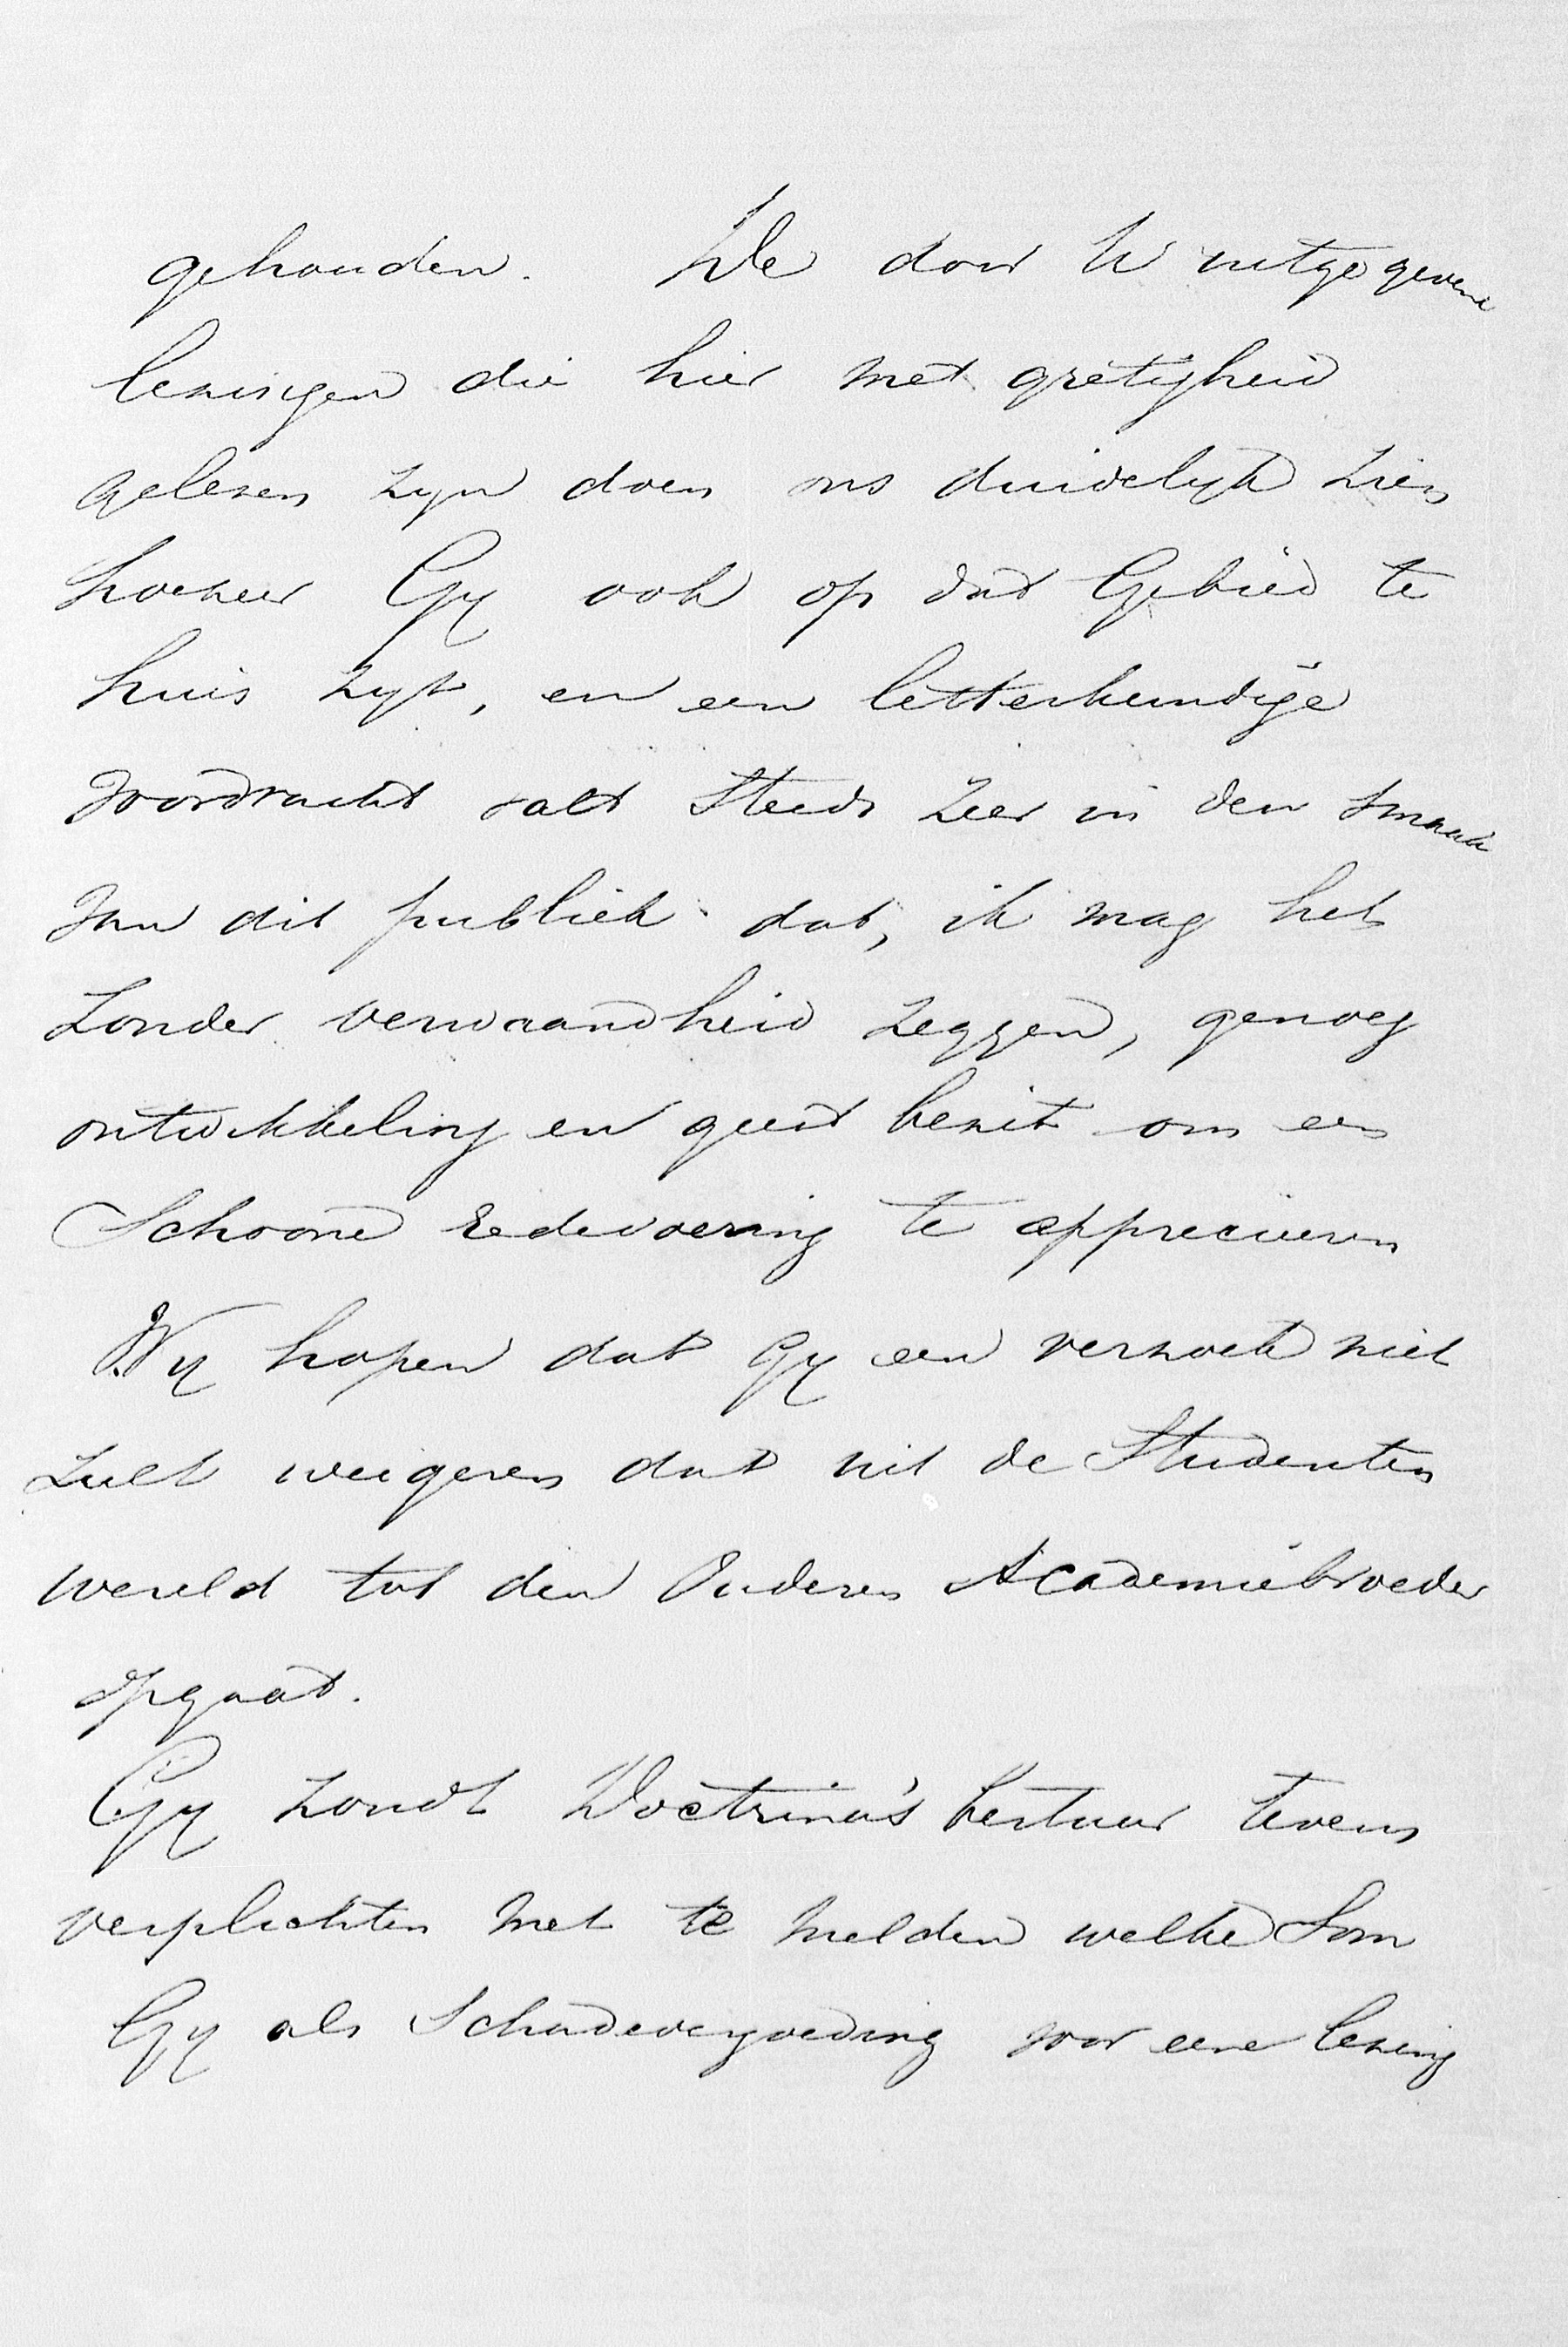 gehouden. De door U uitgegevene
lezingen die hier met gretigheid
gelezen zyn doen ons duidelyk zien
hoezeer Gy ook op dat Gebied te
huis zyt, en een letterkundige
voordracht valt Steeds zeer in den smaak
van dit publiek dat, ik mag het
Zonder verwaandheid zeggen, genoeg
ontwikkeling en geest bezit om een
Schoone redevoering te apprecieren
Wy hopen dat Gy een verzoek niet
zult weigeren dat uit de Studenten
wereld tot den Ouderen Academiebroeder
opgaat.
Gy zoudt Doctrina's bestuur tevens
verplichten met te melden welke Som
Gy als Schadevergoeding voor eene lezing